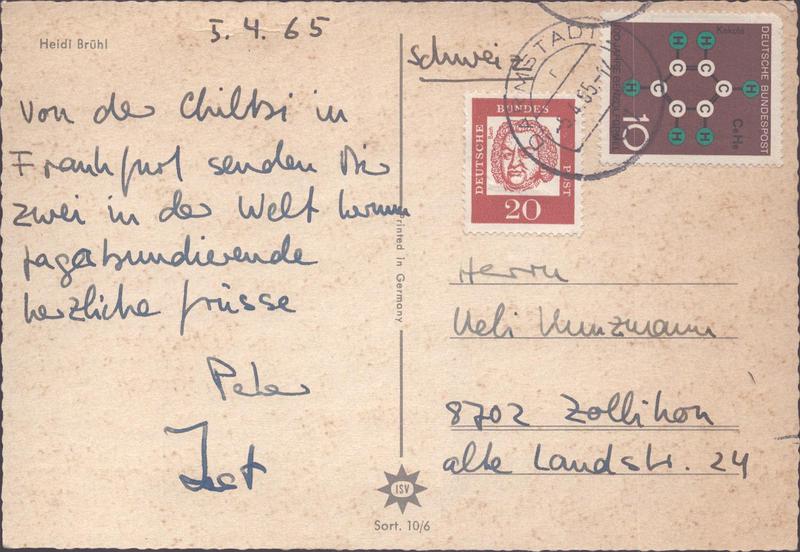 Heidi Brühl
5.4.65
Von der Chilbi in
Frankfurt senden Dir
zwei in der Welt herum
vagabundierende
herzliche Grüsse
Peter
Printed in Germany
ISV
Sort. 10/6
Schweiz
DARMSTADT
DEUTSCHE BUNDESPOST
Kekulé
C6H6
10
DEUTSCHE BUNDES POST
20
Herrn
Ueli Kunzmann
8702 Zollikon
alte Landstr. 24